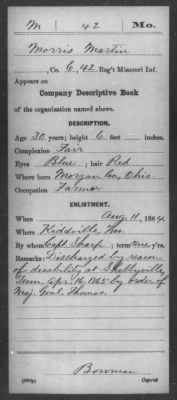 M 42 Mo.
Morris Martin
, Co. E, 42 Reg't Missouri Inf.
Appears on
Company Descriptive Book
of the organization named above.
DESCRIPTION.
Age 30 years; height 6 feet – inches.
Complexion Fair
Eyes Blue; hair Red
Where born Morgan Co, Ohio.
Occupation Farmer
ENLISTMENT.
When Aug. 11, 1864.
Where Kiddville, Mo.
By whom Capt. Sharp; term one y'rs.
Remarks: Discharged by reason
of disability at Shelbyville,
Tenn. Apr. 16, 1865 by order of
Maj. Genl. Thomas.
Bowman
Copyist